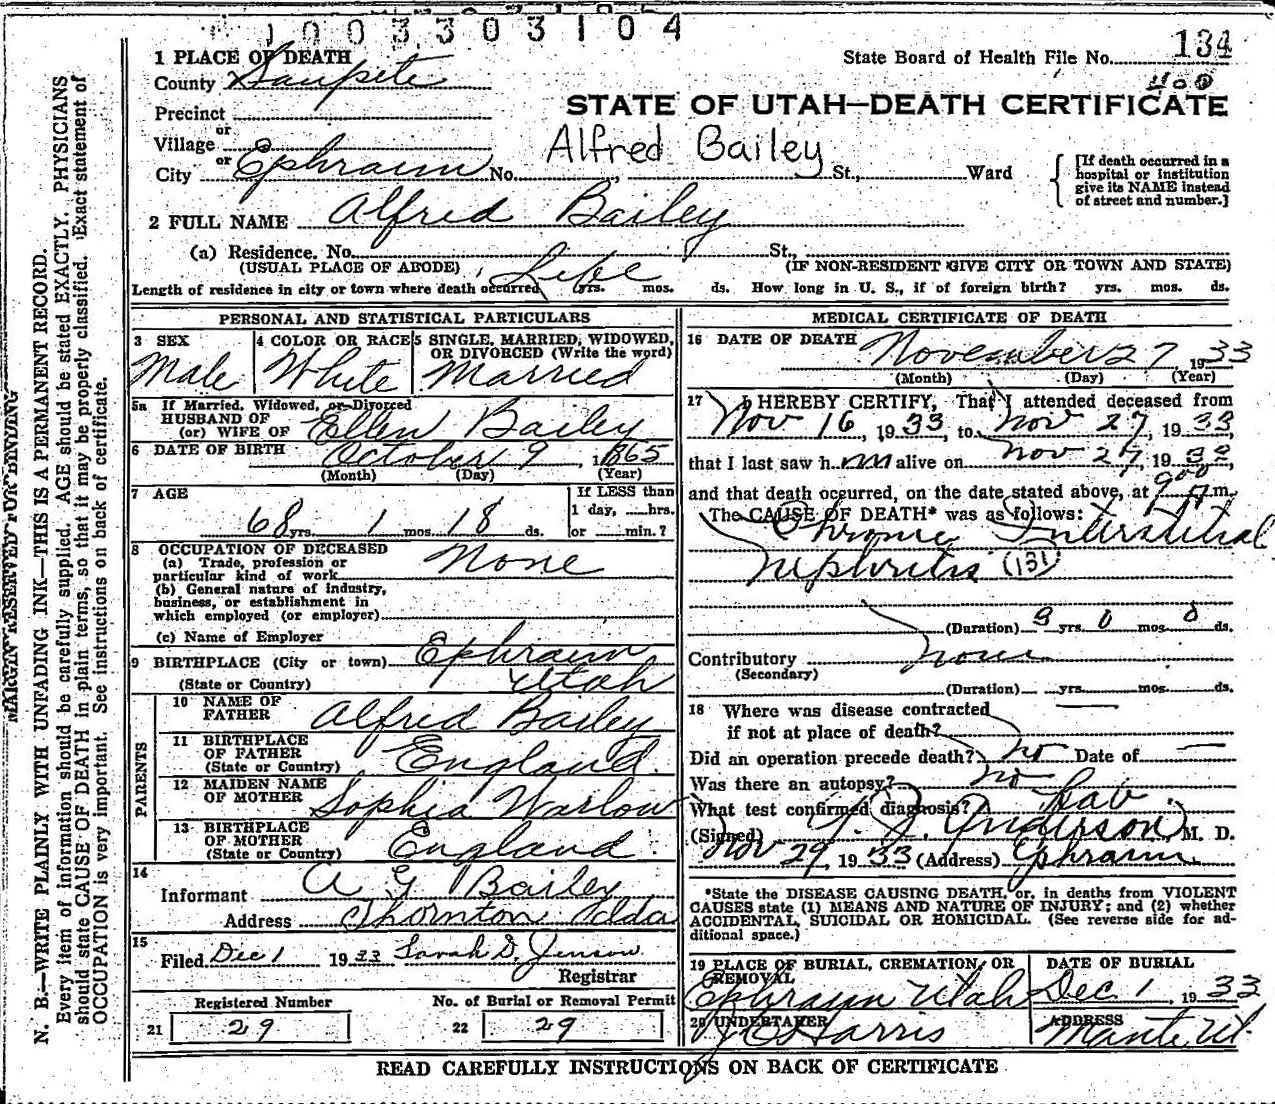 1003303104
1 PLACE OF DEATH
State Board of Health File No. 134
County Sanpete
400
STATE OF UTAH—DEATH CERTIFICATE
Precinct
or
Village
Alfred Bailey
or
City Ephraim No. , St., Ward
[If death occurred in a hospital or institution give its NAME instead of street and number.]
2 FULL NAME Alfred Bailey
(a) Residence. No. St.,
(USUAL PLACE OF ABODE) (IF NON-RESIDENT GIVE CITY OR TOWN AND STATE)
Length of residence in city or town where death occurred Life yrs. mos. ds. How long in U. S., if of foreign birth? yrs. mos. ds.
PERSONAL AND STATISTICAL PARTICULARS
3 SEX 4 COLOR OR RACE 5 SINGLE, MARRIED, WIDOWED, OR DIVORCED (Write the word)
Male White Married
5a If Married, Widowed, or Divorced
HUSBAND OF
(or) WIFE OF Ellen Bailey
6 DATE OF BIRTH October 9, 1865
(Month) (Day) (Year)
7 AGE
If LESS than
1 day, hrs.
68 yrs. 1 mos. 18 ds. or min.?
8 OCCUPATION OF DECEASED
(a) Trade, profession or
particular kind of work None
(b) General nature of industry,
business, or establishment in
which employed (or employer)
(c) Name of Employer
9 BIRTHPLACE (City or town) Ephraim
(State or Country) Utah
PARENTS
10 NAME OF
FATHER Alfred Bailey
11 BIRTHPLACE
OF FATHER
(State or Country) England
12 MAIDEN NAME
OF MOTHER Sophia Warlow
13 BIRTHPLACE
OF MOTHER
(State or Country) England
14
Informant A G Bailey
Address Thornton Idda
15
Filed Dec 1 1933 Sarah D. Jenson
Registrar
Registered Number No. of Burial or Removal Permit
21 29 22 29
MEDICAL CERTIFICATE OF DEATH
16 DATE OF DEATH November 27 1933
(Month) (Day) (Year)
17 I HEREBY CERTIFY, That I attended deceased from
Nov 16, 1933, to Nov 27, 1933,
that I last saw him alive on Nov 27, 1933
and that death occurred, on the date stated above, at 9 00 A m.
The CAUSE OF DEATH* was as follows:
Chronic Interstitial
Nephritis (131)
(Duration) 9 yrs. 0 mos. 0 ds.
Contributory none
(Secondary)
(Duration) yrs. mos. ds.
18 Where was disease contracted
if not at place of death?
Did an operation precede death? no Date of —
Was there an autopsy? no
What test confirmed diagnosis? Lab
(Signed) Anderson, M. D.
Nov 29, 1933 (Address) Ephraim
*State the DISEASE CAUSING DEATH, or, in deaths from VIOLENT
CAUSES state (1) MEANS AND NATURE OF INJURY; and (2) whether
ACCIDENTAL, SUICIDAL OR HOMICIDAL. (See reverse side for ad-
ditional space.)
19 PLACE OF BURIAL, CREMATION, OR REMOVAL DATE OF BURIAL
Ephraim Utah Dec. 1, 1933
20 UNDERTAKER ADDRESS
Harris Mante Ut.
READ CAREFULLY INSTRUCTIONS ON BACK OF CERTIFICATE
MARGIN RESERVED FOR BINDING
N. B.—WRITE PLAINLY WITH UNFADING INK—THIS IS A PERMANENT RECORD.
Every item of information should be carefully supplied. AGE should be stated EXACTLY. PHYSICIANS
should state CAUSE OF DEATH in plain terms, so that it may be properly classified. Exact statement of
OCCUPATION is very important. See instructions on back of certificate.